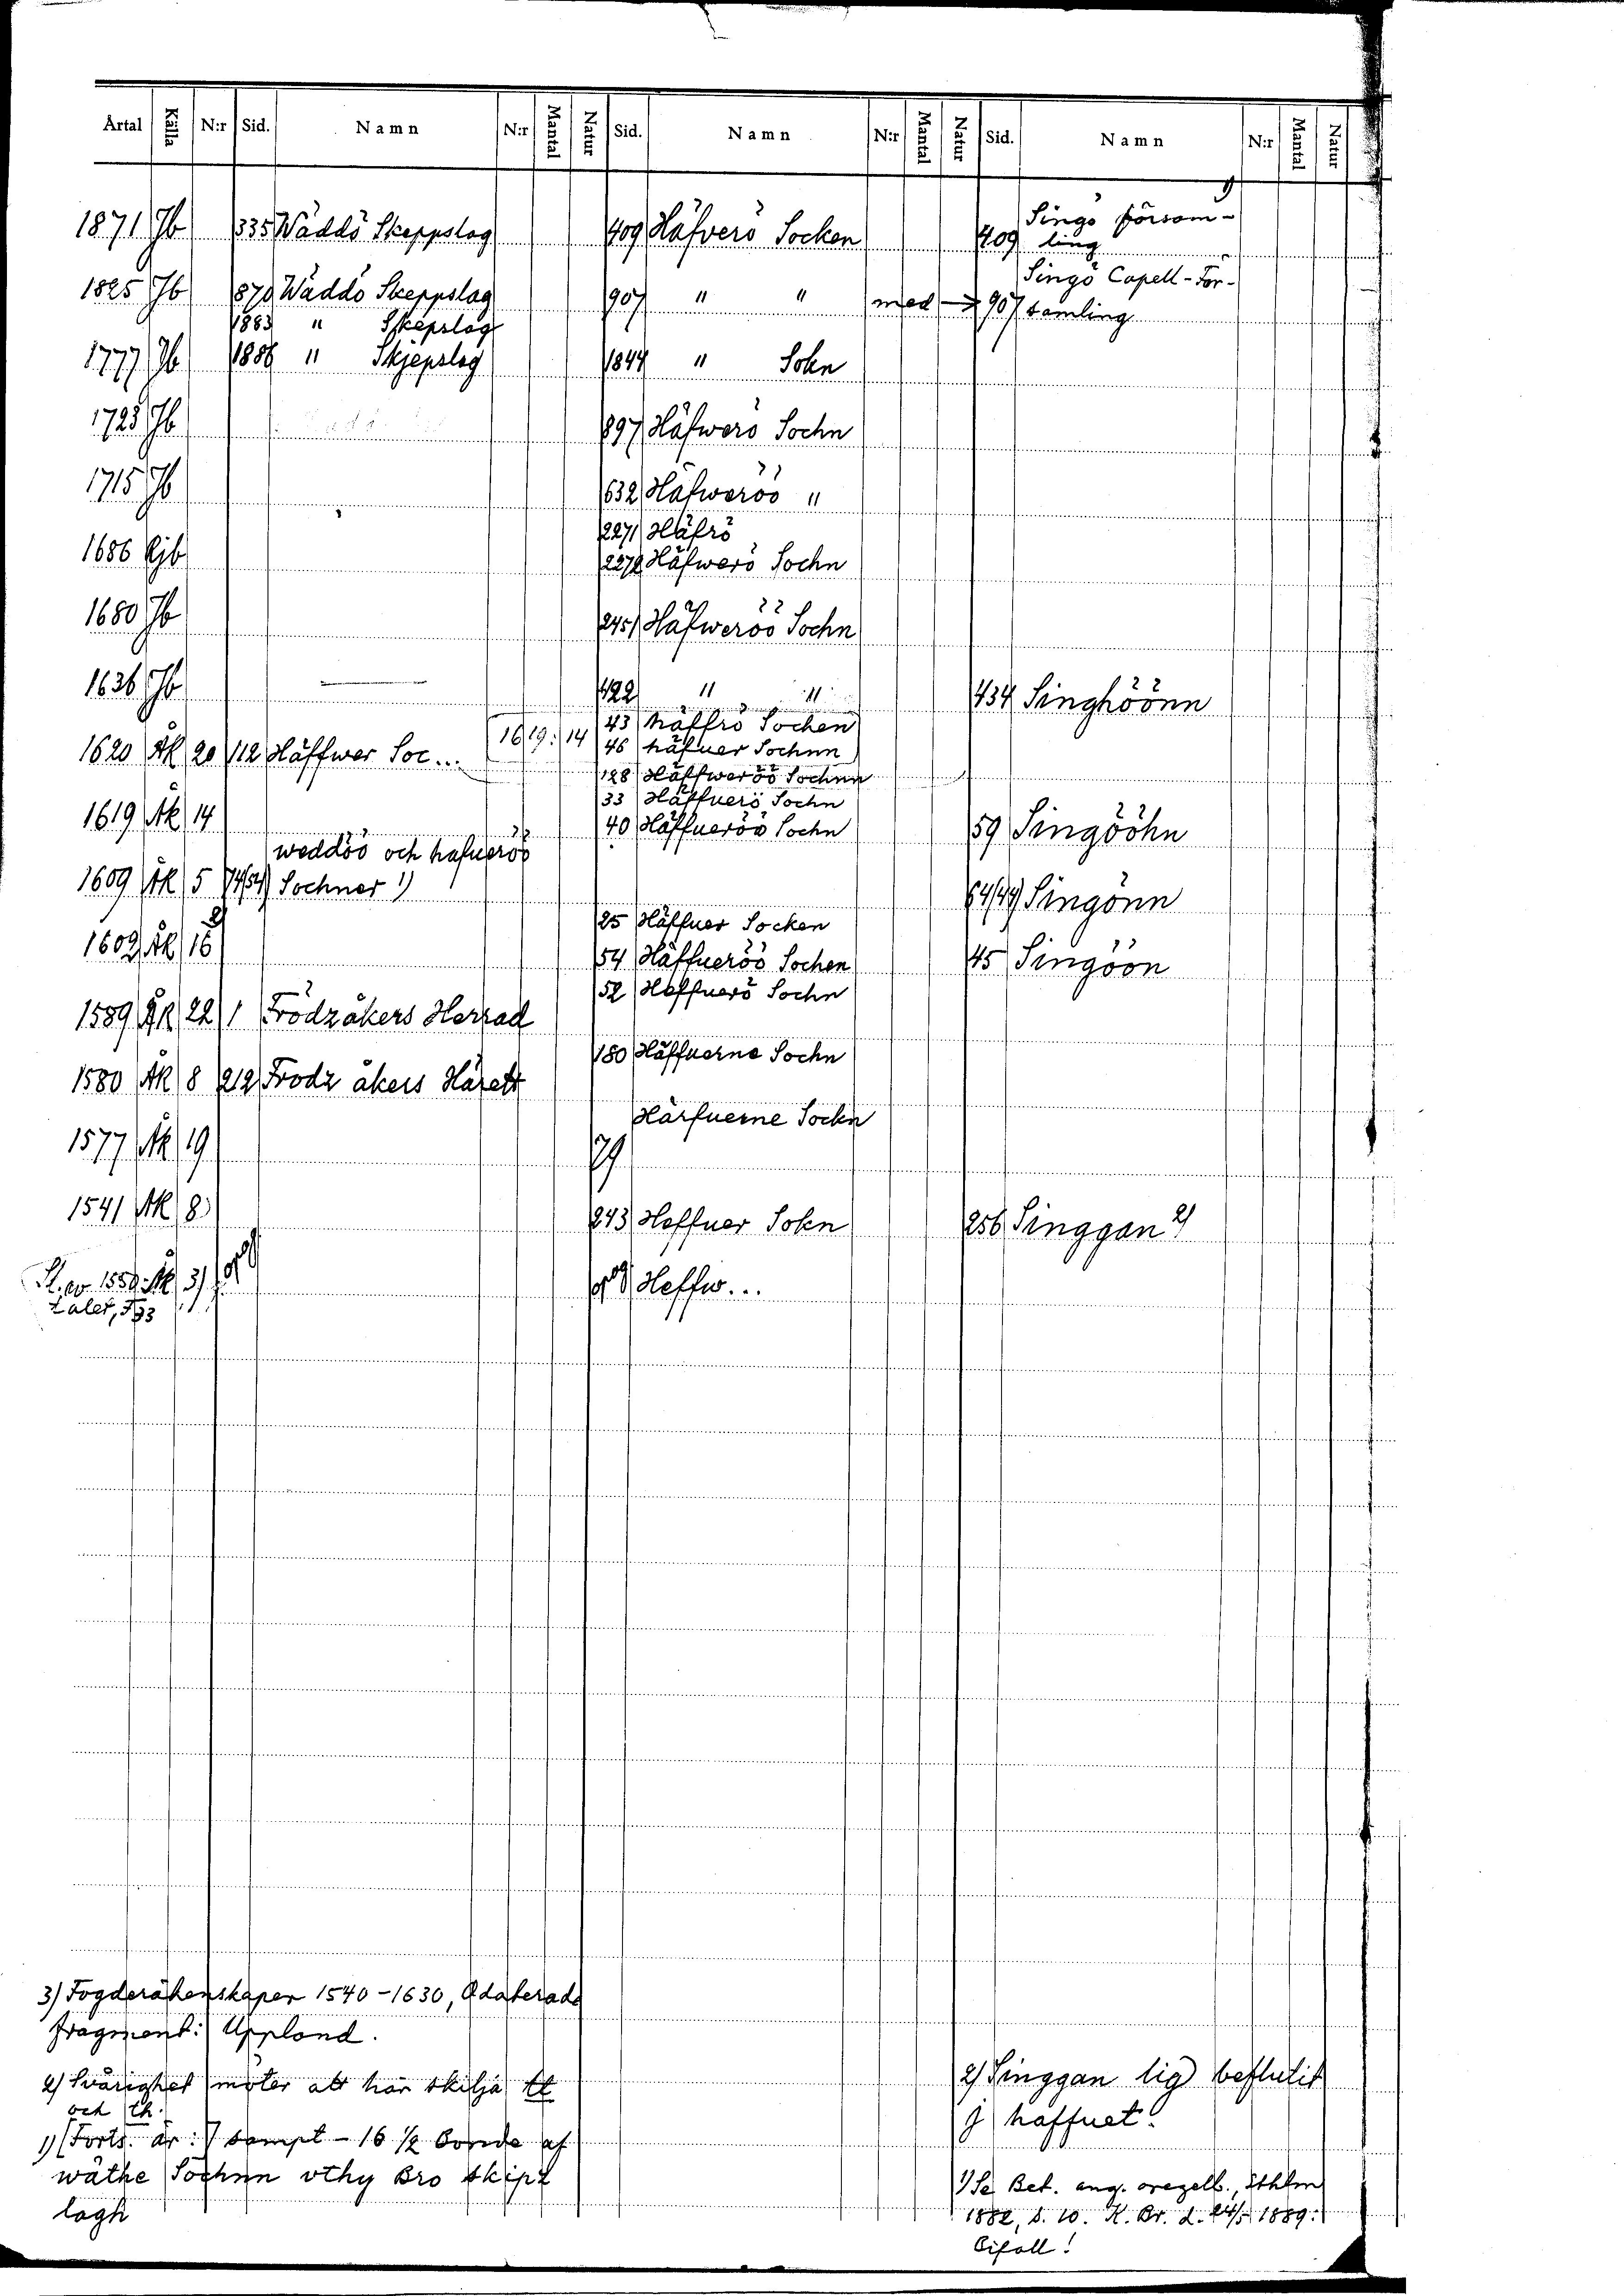 Årtal Källa N:r Sid. Namn N:r Mantal Natur Sid. Namn N:r Mantal Natur Sid. Namn N:r Mantal Natur
1871 Jb 335 Wäddö Skeppslag 409 Häfverö Socken 409 Singö församling 1)
1825 Jb 870 Wäddö Skeppslag 907 " " med → 907 Singö Capell-Församling
1883 " Skepslag
1777 Jb 1886 " Skjepslag 1844 " Sokn
1725 Jb 897 Häfwerö Sochn
1715 Jb 632 Häfweröö "
2271 Häfrö
1686 Rjb 2272 Häfwerö Sochn
1680 Jb 2451 Häfweröö Sochn
1636 Jb 422 " " 434 Singhöönn
1619: 14 43 häffrö Sochen
46 häfuer Sochnn
1620 ÄK 20 112 Häffwer Soc...
128 Häffweröö Sochnn
33 Häffuerö Sochn
1619 ÄK 14 40 Häffueröö Sochn 59 Singööhn
weddöö och hafueröö
1609 ÄK 5 74(54) Sochner 1) 64(44) Singönn
25 Häffuer Socken
1609 ÄK 16 2) 54 Häffueröö Sochen 45 Singöön
52 Haffuerö Sochn
1589 ÄK 22 1 Frödzåkers Herrad
180 Häffuerne Sochn
1580 ÄK 8 212 Frodz åkers Härett
Härfuerne Sockn
1577 ÄK 19 79
1541 ÄK 8 243 Heffuer Sokn 256 Singgan 2)
Heffw...
3) Fogderäkenskaper 1540-1630, Odaterade
fragment: Uppland.
2) Svårighet möter att här skilja tt
och th.
1) Forts. är: sampt - 16 1/2 bonde af
wäthe Sochnn vthy Bro skipz
lagh
2) Singgan lig beflutit
j haffuet.
1) Se Bet. ang. oregelb., Sthlm
1882, s. 10. K. Br. d. 24/5 1889:
Bifall!